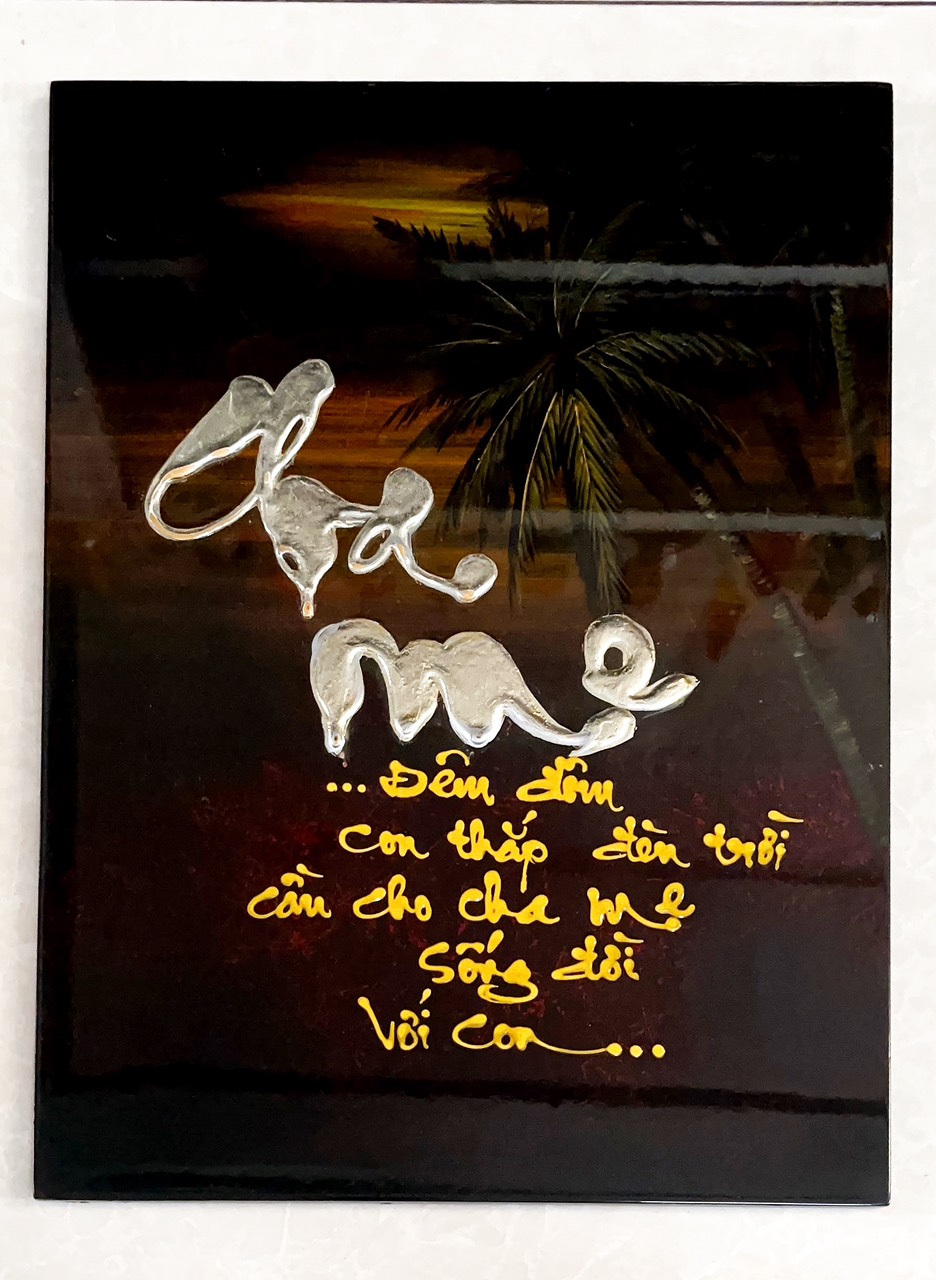 Cha
mẹ
...Đêm đêm
con thắp đèn trời
cầu cho cha mẹ
sống đời
Với con...